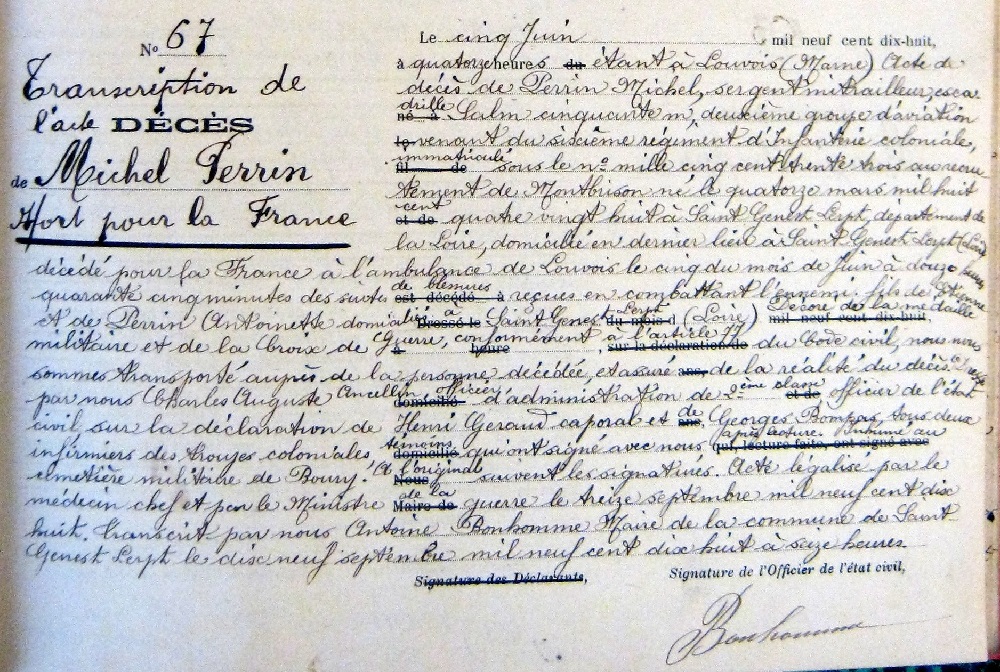 N° 67
Transcription de
l'acte DÉCÈS
de Michel Perrin
Mort pour la France
Le cinq Juin mil neuf cent dix-huit,
à quatorze heures du étant à Louvois (Marne) Acte de
décès de Perrin Michel, sergent mitrailleur, esca
drille
né à Salm cinquante m, deuxième groupe d'aviation
le venant du sixième régiment d'Infanterie coloniale,
immatriculé
fil de sous le n° mille cinq cent trente trois au recru
tement de Montbrison né le quatorze mars mil huit
cent
et de quatre vingt huit à Saint Genest Lerpt, département de
la Loire, domicilié en dernier lieu à Saint Genest Lerpt (Loire)
décédé pour la France à l'ambulance de Louvois le cinq du mois de Juin à douze heures
de blessures
quarante cinq minutes des suites est décédé à reçues en combattant l'ennemi. fils de
à Lerpt Décoré de la médaille
et de Perrin Antoinette domicilié Dressé le Saint Genest du mois d (Loire) mil neuf cent dix-huit
militaire et de la Croix de Guerre, conformément à l'article 77
à heure , sur la déclaration de du code civil, nous nous
sommes transporté auprès de la personne décédée, et assuré ans, de la réalité du décès.
officier
par nous Charles Auguste Ancellin domicilié d'administration de 2ème classe et de officier de l'état
civil sur la déclaration de Henri Geraud caporal et de ans, Georges Bompas, tous deux
témoins après lecture. Inhumé au
infirmiers des troupes coloniales domicilié qui ont signé avec nous qui, lecture faite, ont signé avec
cimetière militaire de Bouy. A l'original
Nous suivent les signatures. Acte légalisé par le
de la
médecin chef et par le Ministre Maire de guerre le treize septembre mil neuf cent dix
huit. Transcrit par nous Antoine Bonhomme Maire de la commune de Saint
Genest Lerpt le dix neuf septembre mil neuf cent dix huit à seize heures.
Signature des Déclarants, Signature de l'Officier de l'état civil,
Bonhomme